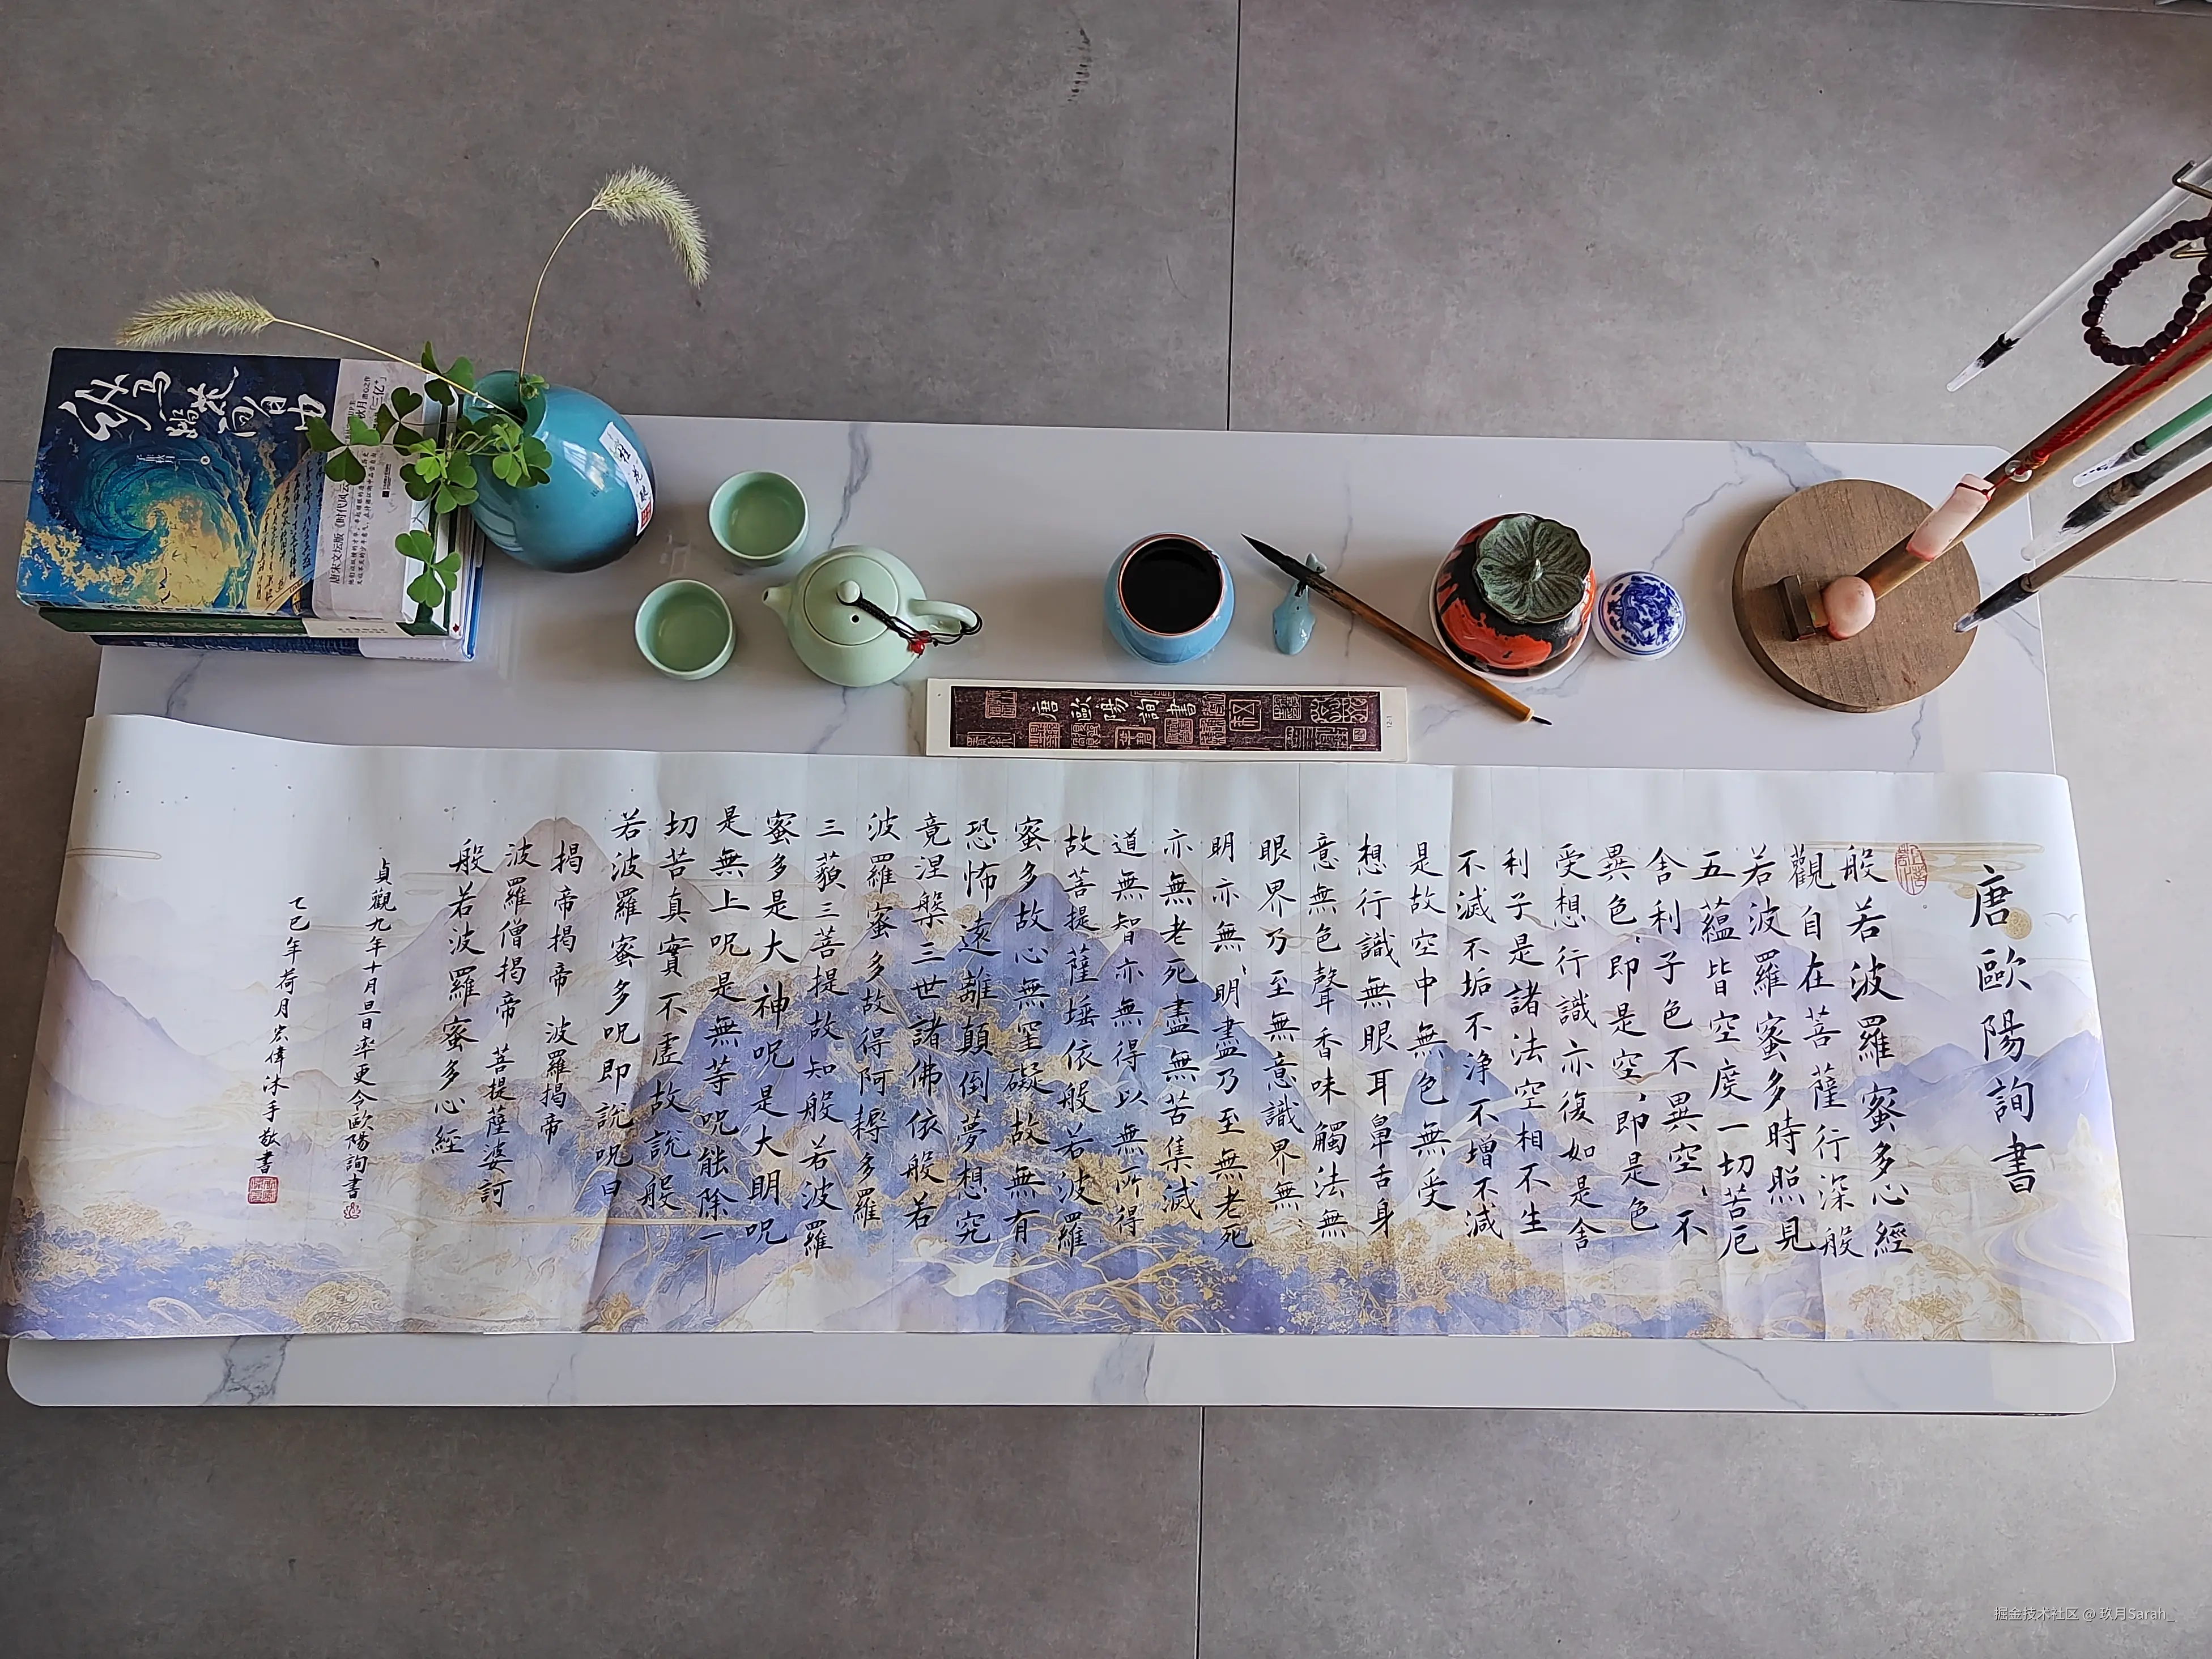 唐歐陽詢書
般若波羅蜜多心經
觀自在菩薩行深般
若波羅蜜多時照見
五蘊皆空度一切苦厄
舍利子色不異空不
異色即是空即是色
受想行識亦復如是舍
利子是諸法空相不生
不滅不垢不净不增不減
是故空中無色無受
想行識無眼耳鼻舌身
意無色聲香味觸法無
眼界乃至無意識界無
明亦無明盡乃至無老死
亦無老死盡無苦集滅
道無智亦無得以無所得
故菩提薩埵依般若波羅
蜜多故心無罣礙故無有
恐怖遠離顛倒夢想究
竟涅槃三世諸佛依般若
波羅蜜多故得阿耨多羅
三藐三菩提故知般若波羅
蜜多是大神呪是大明呪
是無上呪是無等呪能除一
切苦真實不虛故說般
若波羅蜜多呪即說呪曰
揭帝揭帝 波羅揭帝
波羅僧揭帝 菩提薩婆訶
般若波羅蜜多心經
貞觀九年十月旦日率更令歐陽詢書
乙巳年荷月宏偉沐手敬書
唐歐陽詢書
12-1
纵马踏花向自由
唐宋文坛版《时代风云
掘金技术社区 @ 玖月Sarah_